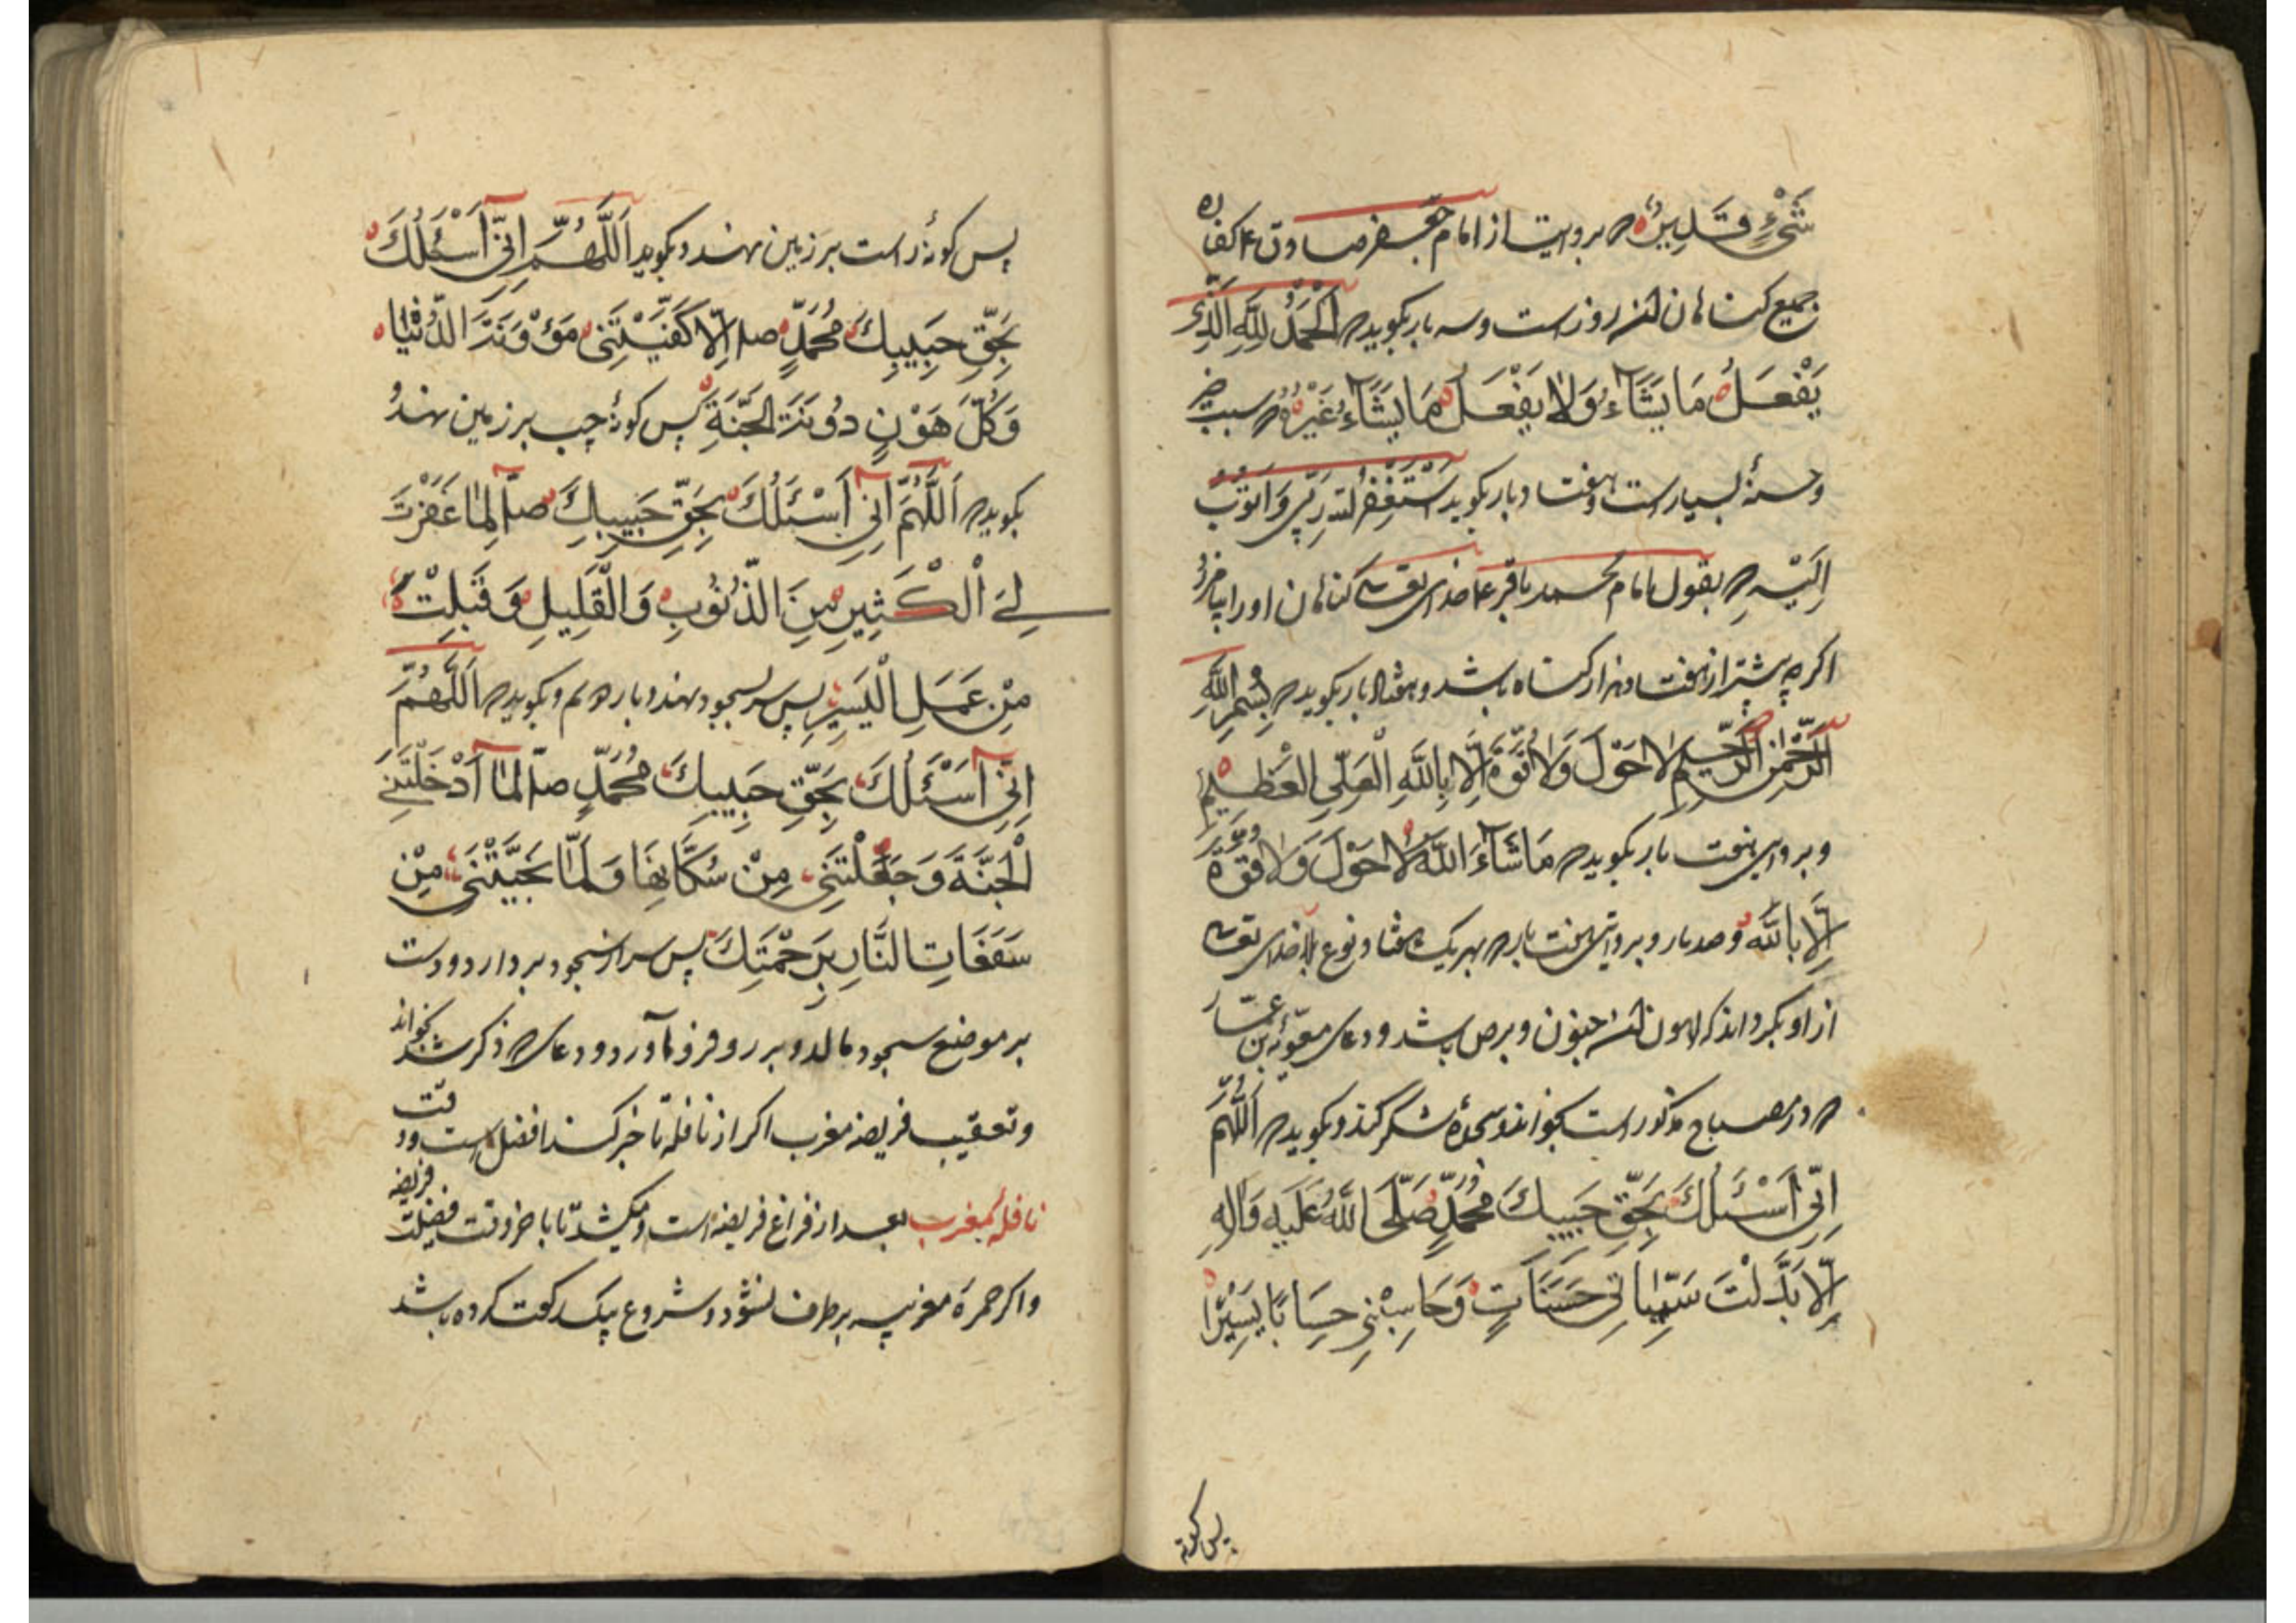 شَیْءٍ قَدِیرٌ که بروایت از امام جعفر صادق ع کفاره
جمیع کناهان آنروز است و سه بار بکوید که اَلْحَمْدُ لِلّٰهِ الَّذِی
یَفْعَلُ مَا یَشَآءُ وَلَا یَفْعَلُ مَا یَشَآءُ غَیْرُهُ که سبب خیر
وحسنهٔ بسیار است وهفتاد بار بکوید اَسْتَغْفِرُ اللّٰهَ رَبِّی وَاَتُوبُ
اِلَیْهِ که بقول امام محمد باقر ع خدای تعالی کناهان اورا بیامرزد
اکرچه بیشتر از هفتاد هزار کناه باشد و هفت بار بکوید که بِسْمِ اللّٰهِ
الرَّحْمٰنِ الرَّحِیمِ لَا حَوْلَ وَلَا قُوَّةَ اِلَّا بِاللّٰهِ الْعَلِیِّ الْعَظِیمِ
و بروایتی هفت بار بکوید که مَا شَآءَ اللّٰهُ لَا حَوْلَ وَلَا قُوَّةَ
اِلَّا بِاللّٰهِ وصد بار و بروایتی هفت بار که بهر یک هفتاد نوع بلا خدای تعالی
از او بکرداند که اهون آن جنون و برص باشد و دعای معویة بن عمار
که در مصباح مذکور است بخواند و سجدهٔ شکر کند و بکوید که اَللّٰهُمَّ
اِنِّی اَسْئَلُكَ بِحَقِّ حَبِیبِكَ مُحَمَّدٍ صَلَّی اللّٰهُ عَلَیْهِ وَآلِهِ
اِلَّا بَدَّلْتَ سَیِّئَاتِی حَسَنَاتٍ وَحَاسِبْنِی حِسَابًا یَسِیْرًا
پس کونه
پس کونهٔ راست بر زمین نهد و بکوید اَللّٰهُمَّ اِنِّی اَسْئَلُكَ
بِحَقِّ حَبِیبِكَ مُحَمَّدٍ صلا اِلَّا کَفَیْتَنِی مَؤُونَةَ الدُّنْیَا
وَکُلَّ هَوْنٍ دُونَةَ الْجَنَّةِ پس کونهٔ چپ بر زمین نهد و
بکوید که اَللّٰهُمَّ اِنِّی اَسْئَلُكَ بِحَقِّ حَبِیبِكَ صلا لَمَّا غَفَرْتَ
لِیَ الْکَثِیرِ مِنَ الذُّنُوبِ وَالْقَلِیلِ وَقَبِلْتَ
مِنْ عَمَلِ الْیَسِیرِ پس سر بسجود نهد دوبارهم و بکوید که اَللّٰهُمَّ
اِنِّی اَسْئَلُكَ بِحَقِّ حَبِیبِكَ مُحَمَّدٍ صلا لَمَّا اَدْخَلْتَنِیَ
الْجَنَّةَ وَجَعَلْتَنِی مِنْ سُکَّانِهَا وَلَمَّا نَجَیَّتْنِی مِنْ
سَفَعَاتِ النَّارِ بِرَحْمَتِكَ پس سر از سجود بردارد و دست
بر موضع سجود مالد و بر رو فرود آورد و دعای که ذکر شد بخواند
وتعقیب فریضه مغرب اکر از نافله تاخیر کند افضل است ووقت
نافلهٔ مغرب بعد از فراغ فریضه است و میکشد تا باخر وقت فضیلت فریضه
واکر حمرة مغربیه برطرف نشود و شروع بیک رکعت کرده باشد